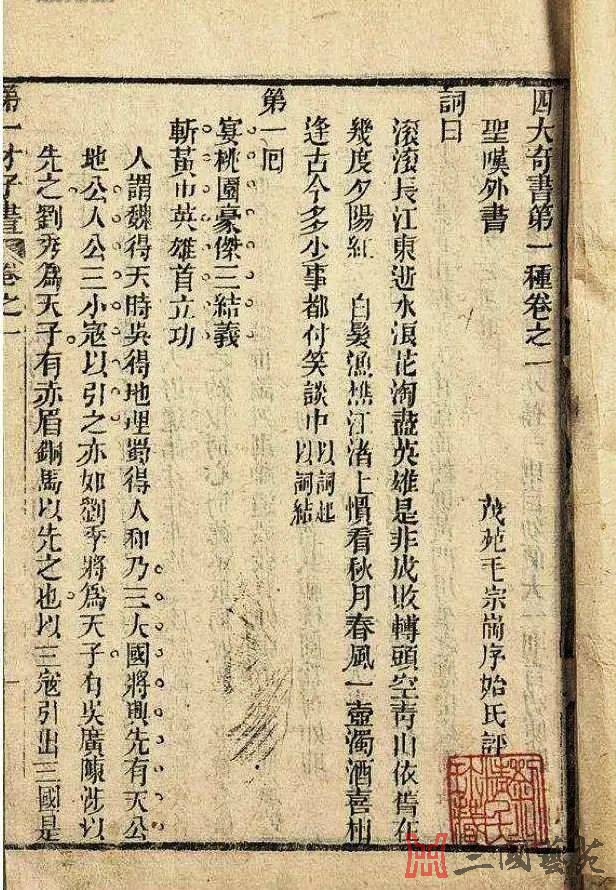 四大奇書第一種卷之一
聖嘆外書
茂苑毛宗崗序始氏評
詞曰
滾滾長江東逝水浪花淘盡英雄是非成敗轉頭空青山依舊在
幾度夕陽紅　白髮漁樵江渚上慣看秋月春風一壺濁酒喜相
逢古今多少事都付笑談中以詞起以詞結
第一回
宴桃園豪傑三結義
斬黃巾英雄首立功
人謂魏得天時吳得地理蜀得人和乃三大國將興先有天公
地公人公三小寇以引之亦如劉季將爲天子有吳廣陳涉以
先之劉秀爲天子有赤眉銅馬以先之也以三寇引出三國是
第一才子書　卷之一
三國藝苑